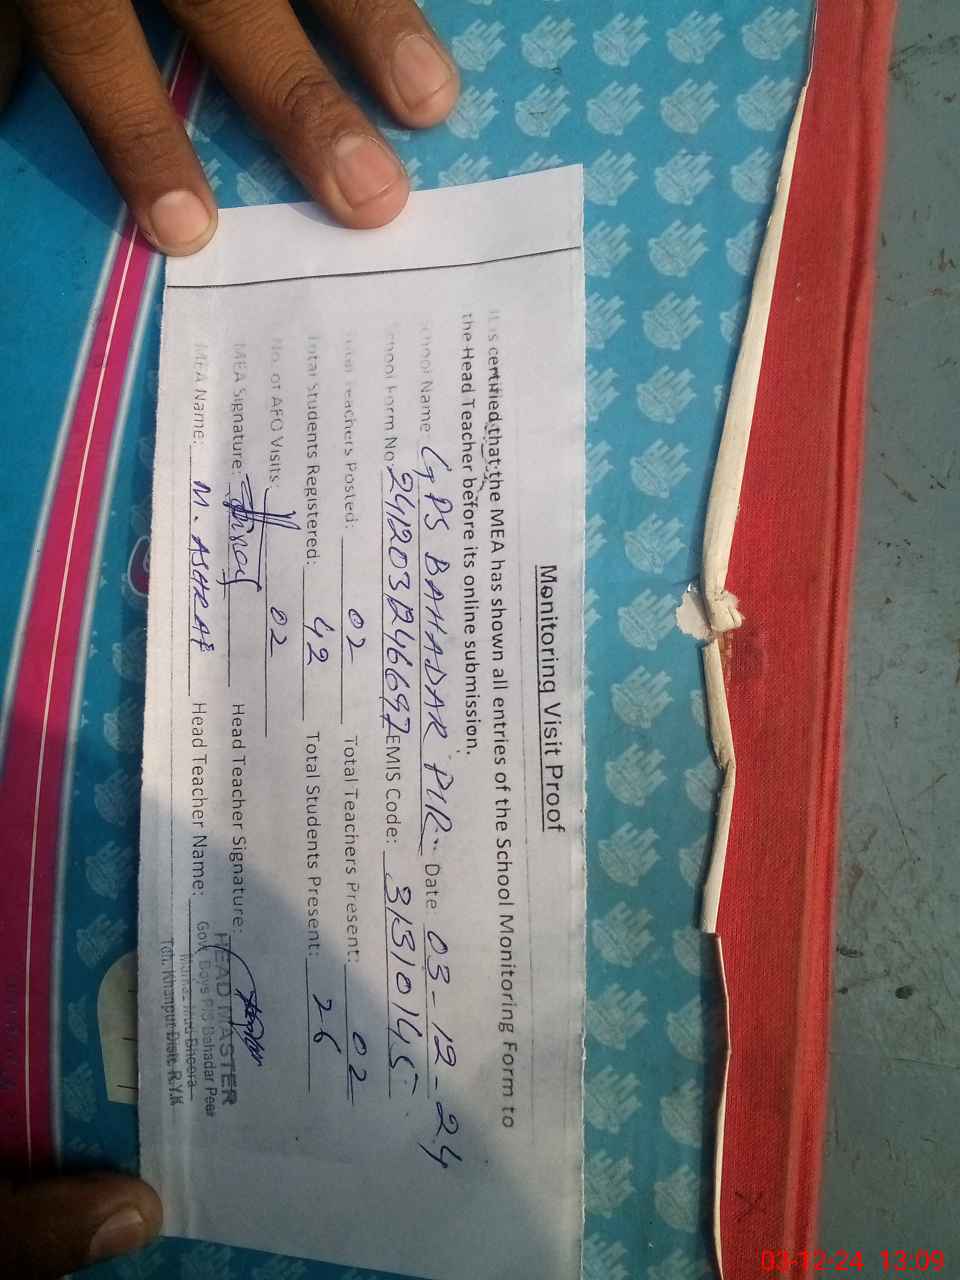 Monitoring Visit Proof
It is certified that the MEA has shown all entries of the School Monitoring Form to
the Head Teacher before its online submission.
School Name: GPS BAHADAR PIR Date: 03-12-24
School Form No. EMIS Code: 31310145
Total Teachers Posted: 02 Total Teachers Present: 02
Total Students Registered: 42 Total Students Present: 26
No. of AEO Visits: 02
MEA Signature: Head Teacher Signature:
MEA Name: M. ASHRAF Head Teacher Name:
HEAD MASTER
Govt. Boys P/S Bahadar Peer
Teh. Khanpur Distt. R.Y.K
03-12-24 13:09